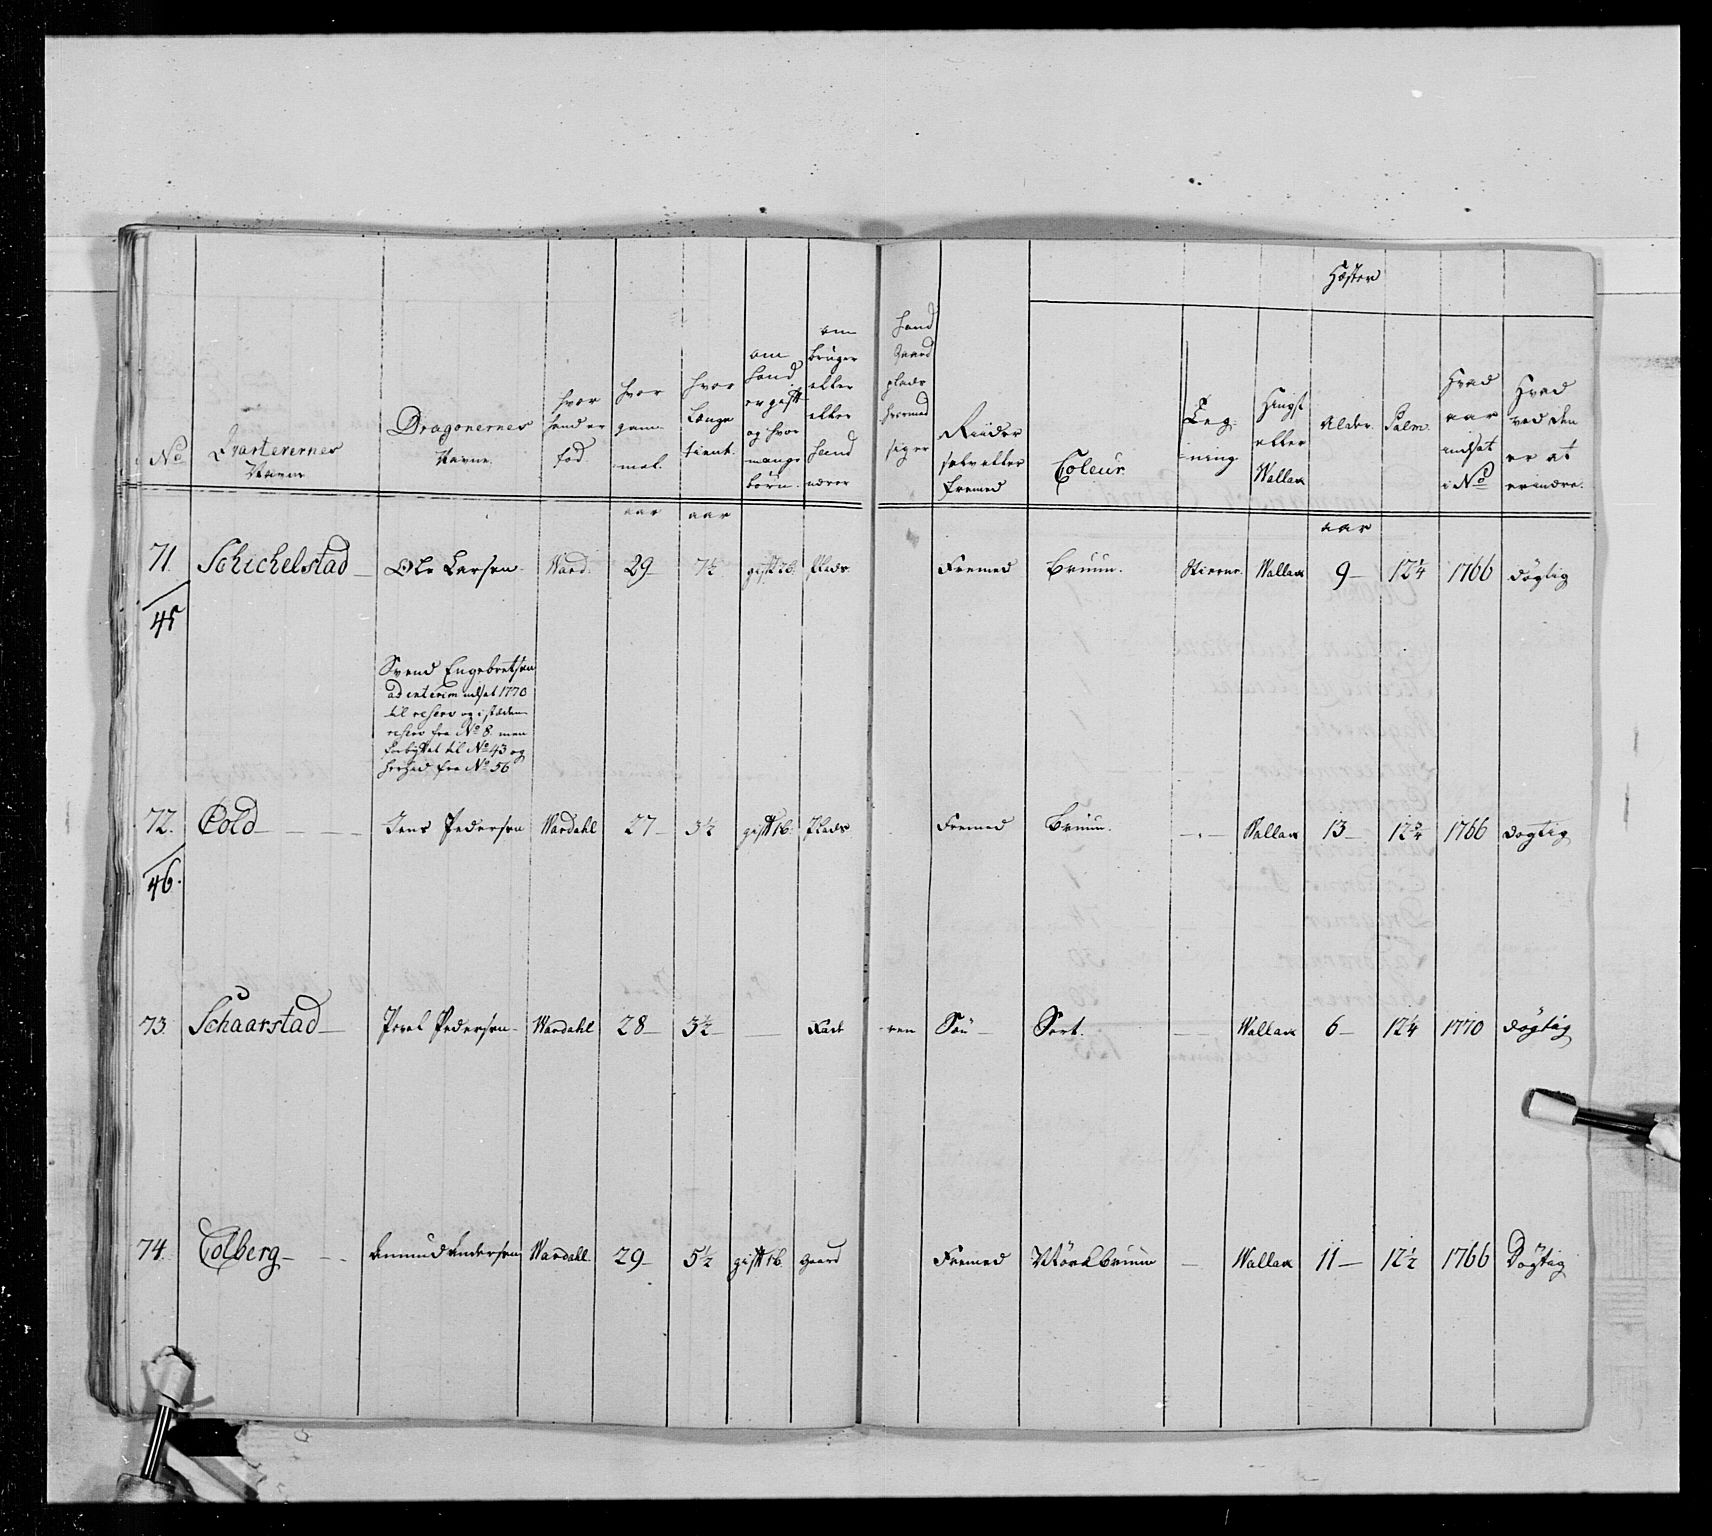 Hæster
No
Qvarterernes Navne
Dragonernes Navne
hvor hand er fød
hvor gammel
hvor Længe tient
om hand er gift og hvor mange børn
om bruger eller eller hand nærer
hand Gaard plads hvormed sig er
Riider selv eller fremed
Coleur
Teg-ning
Hingst eller Wallak
Alder
Palm
Hvad aar indsat i No
Hvad ved den er at erindre
aar aar aar
71. Schichelstad Ole Larsen Ward. 29 7½ gift 2 b. Plads Fremed Bruun. Stierne Wallak 9 12¼ 1766 døgtig
45
Svend Engebretsen
ad interim udsat 1770
til reserv og i stæden
reserv fra No 8. men
forbyttet til No 43 og
hertil fra No 56
72. Cold Jens Pedersen Wardahl 27 3½ gift 1 b. Plads Fremed Bruun. Wallak 13 12¾ 1766 døgtig
46.
73. Schaarstad Povel Pedersen Wardahl 28 3½ Fade ren Søn Sort. Wallak 6 12¼ 1770 døgtig
74. Colberg Amund Andersen Wardall 29 5½ gift 1 b. Gaard Fremed Mörkbruun Wallak 11 12½ 1766 Døgtig